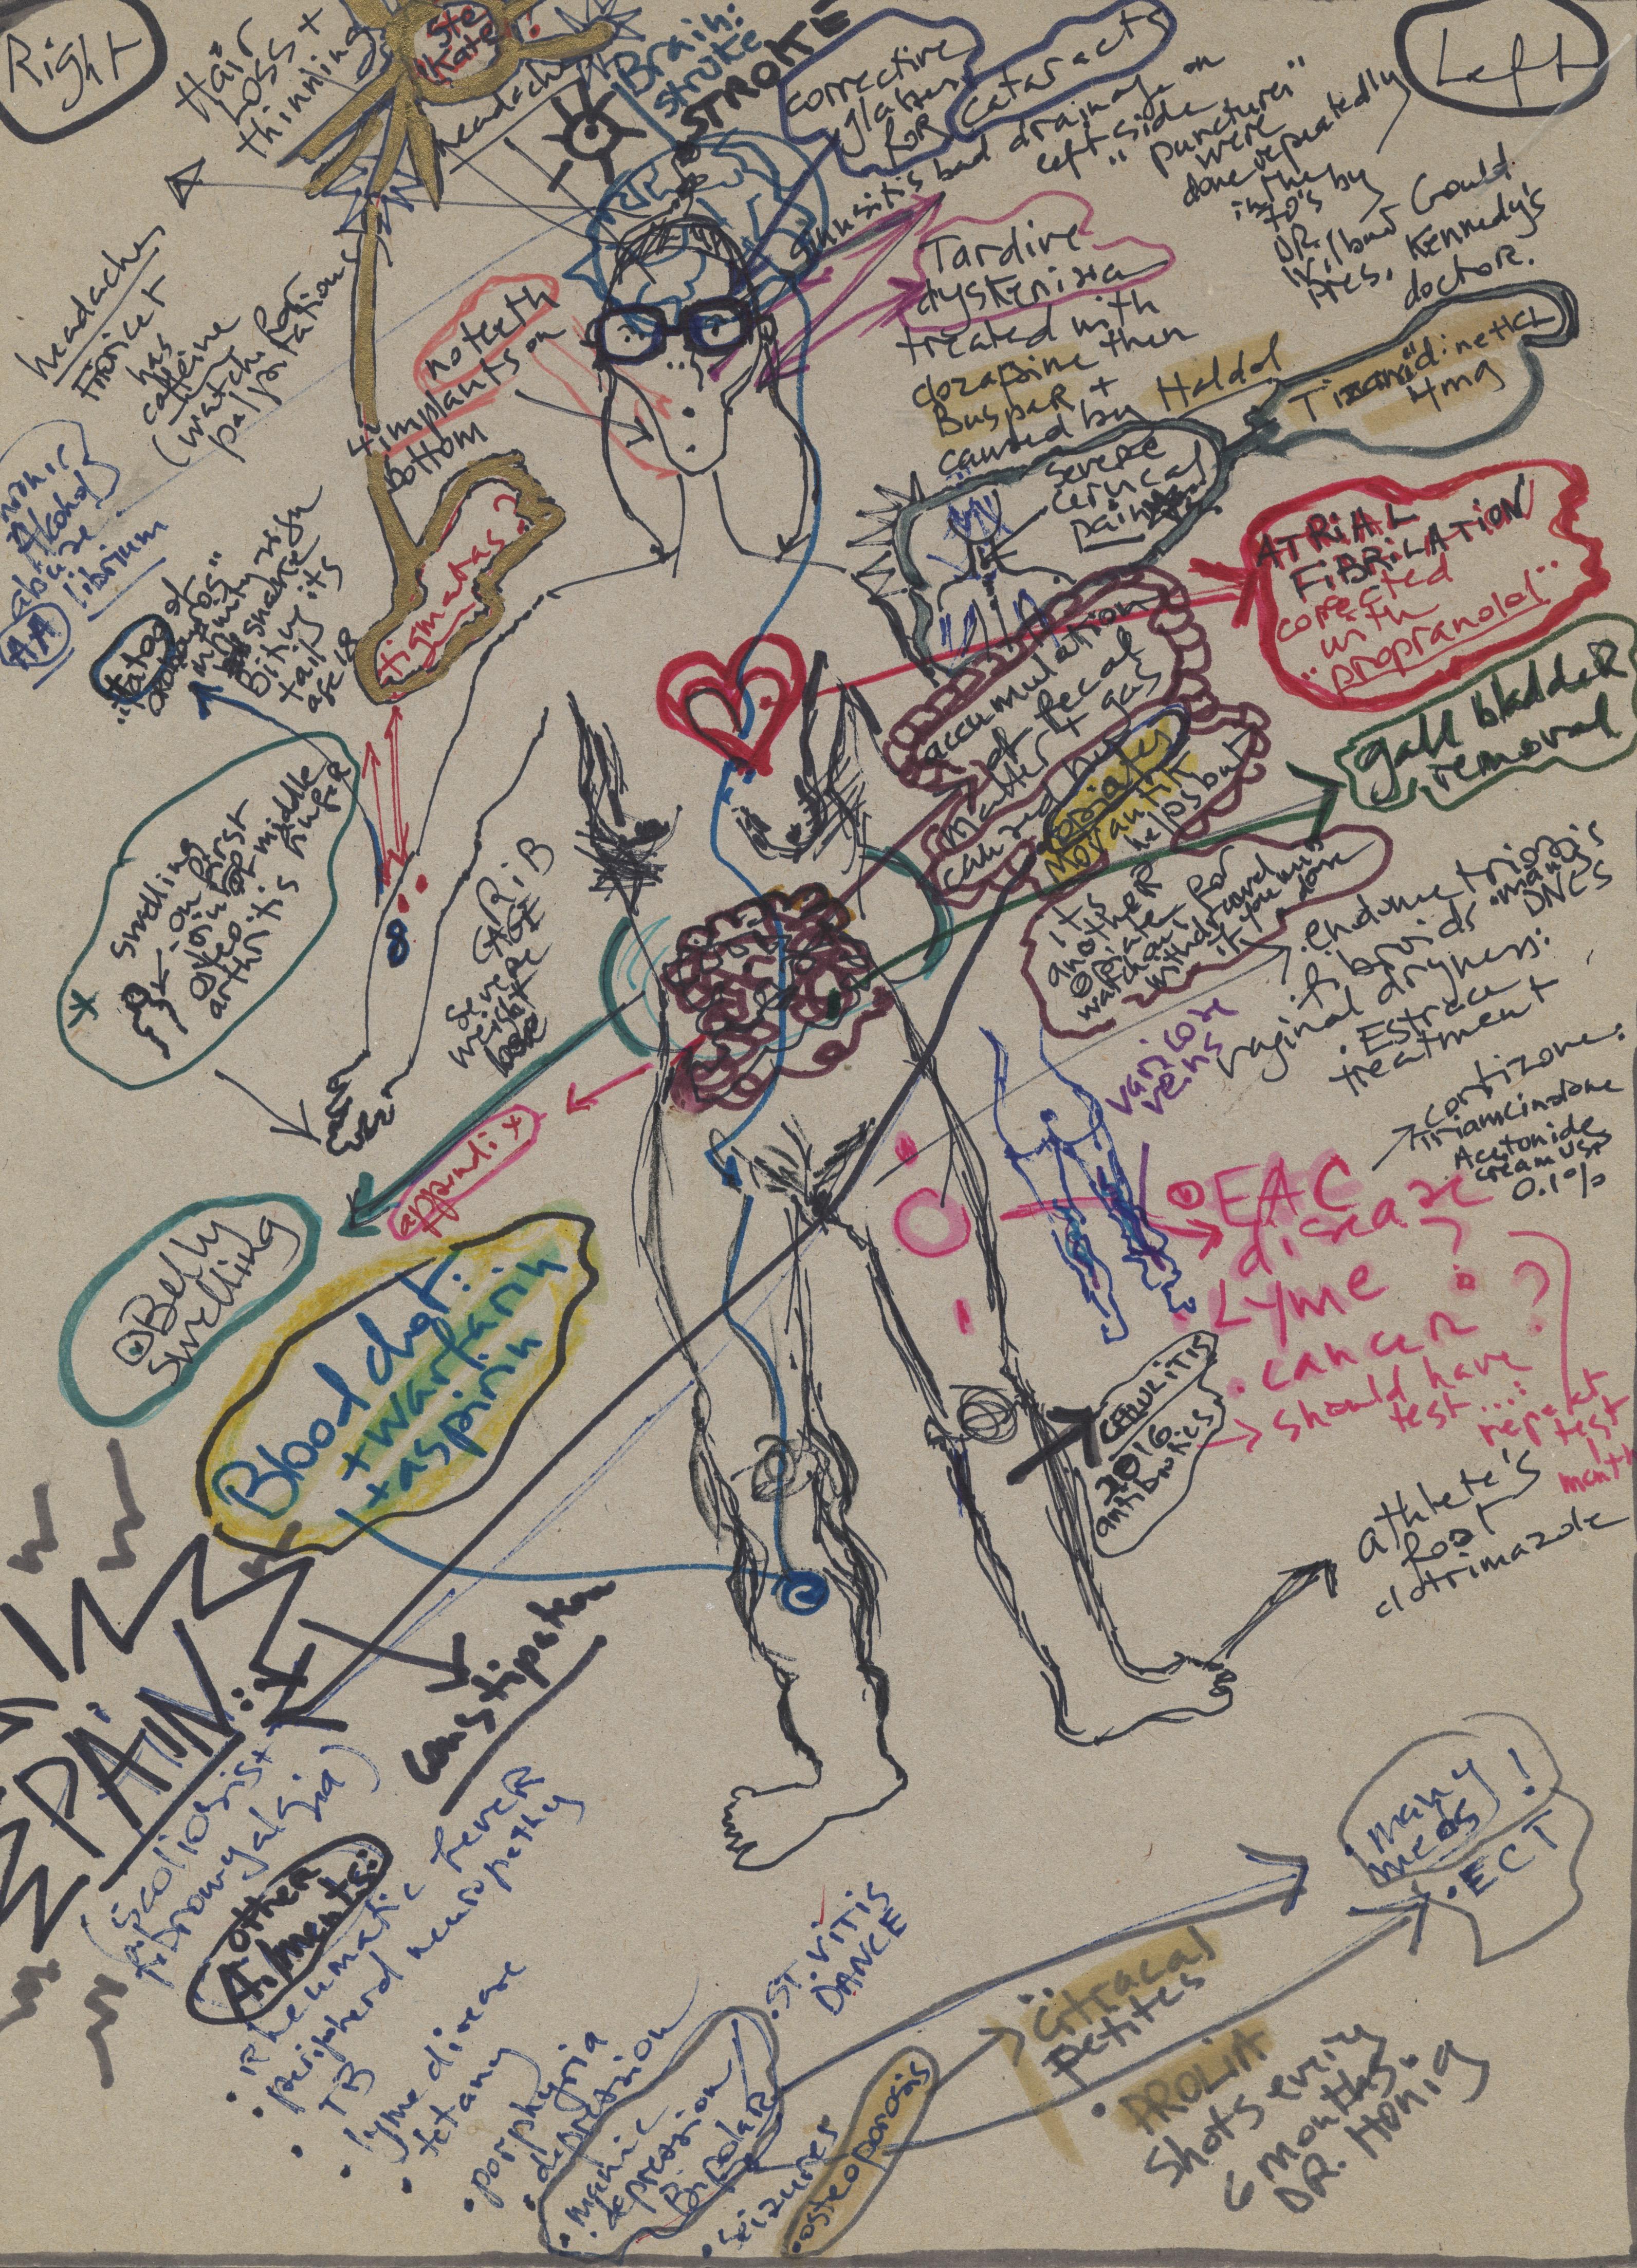 Right
Left
Hair
Loss +
thinning
Ste
Kate?
headache
Brain:
stroke
STROKE
corrective
glasses
for
cataracts
sinusitis bad drainage on
left side
"punctures"
were
done repeatedly
in the
70's by
DR.
Gould
Pres. Kennedy's
doctor.
headaches
Fioricet
has
caffeine
(watch for
palpitations)
no teeth
4 implants on
bottom
Tardive
dyskenizia
treated with
clozapine then
Buspar +
caused by Haldol
Tizanidine HCL
4mg
severe
cervical
pain
Alcohol
abuse
Librium
AA
"tatoo of
infinity sign
snake
biting its
tail
age 18
stigmatas?
ATRIAL
FIBRILATION
corrected
with
"propranolol"
accumulation
of fecal
matter + gas
caused by
opiates
Movantik
helps but
its
another
opiate
watch out for
withdrawal
if you miss
dose
gall bladder
removal
swelling
on first
joint of middle
finger
osteo
arthritis
RIB
CAGE
severe
weight
loss
endometriosis
fibroids
many
DNCS
vaginal dryness:
Estrace
treatment
varicose
veins
cortizone:
Triamcinolone
Acetonide
cream USP
0.1%
appendix
Belly
swelling
Blood clot:
+ warfarin
+ aspirin
EAC
disease
?
Lyme
?
cancer
should have
test...
repeat
test
month
cellulitis
2016
antibiotics
athlete's
foot
clotrimazole
PAIN:
constipation
(scoliosis +
fibromyalgia)
other
Ailments:
rheumatic fever
peripheral neuropathy
TB
lyme disease
tetany
porphyria
depression
manic
depression
Bipolar
seizures
osteoporosis
ST. VITIS
DANCE
many
meds!
ECT
citracal
petites
PROLIA
shots every
6 months.
DR. Honig